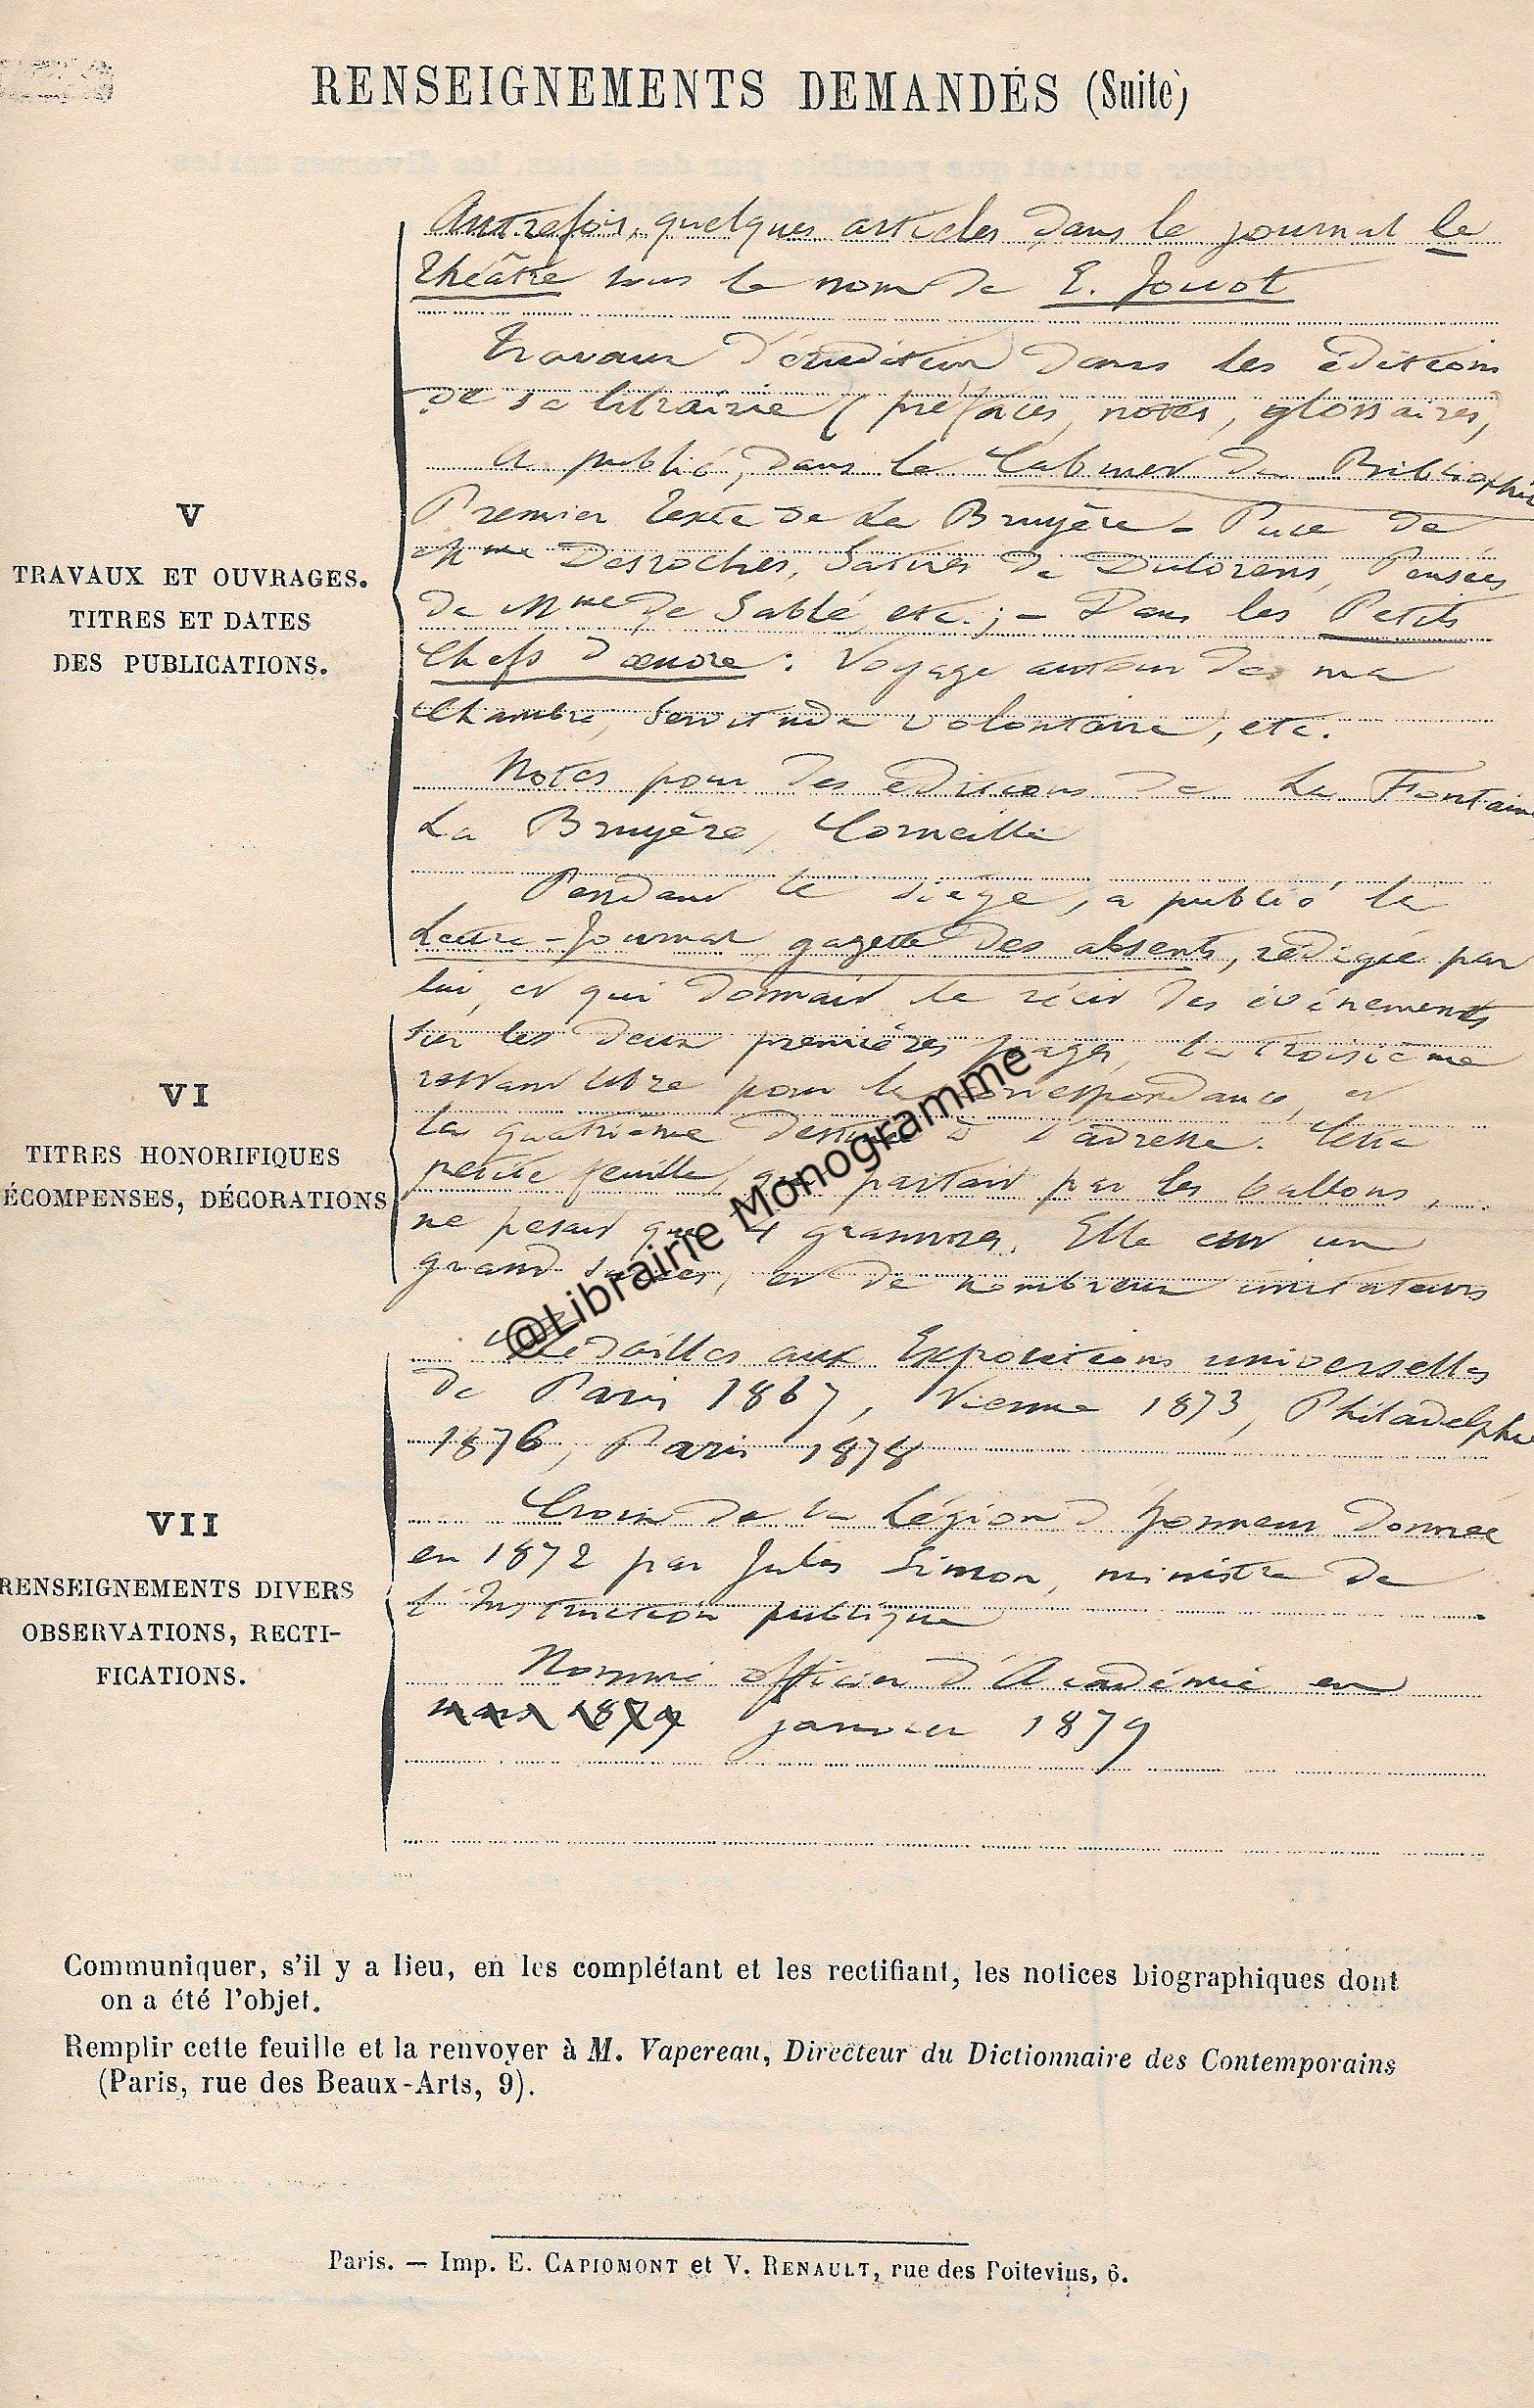 RENSEIGNEMENTS DEMANDÉS (Suite)
Autrefois, quelques articles dans le journal le
Théâtre sous le nom de E. Jouot
Travaux d'érudition dans les éditions
de sa librairie (préfaces, notes, glossaires,
A publié, dans le Cabinet du Bibliophile
Premier texte de La Bruyère – Puce de
Mme Desroches, Satires de Dulorens, Pensées
de Mme de Sablé, etc.; – Dans les Petits
Chefs d'œuvre : Voyage autour de ma
Chambre, Servitude volontaire, etc.
Notes pour des éditions de La Fontaine
La Bruyère, Corneille
Pendant le siège, a publié la
Lettre-Journal gazette des absents, rédigée par
lui, et qui donnait le récit des événements
sur les deux premières pages, la troisième
restant libre pour la correspondance, et
la quatrième destinée à l'adresse. Cette
petite feuille, qui partait par les ballons,
ne pesait que 4 grammes. Elle eut un
grand succès, et de nombreux imitateurs
Médailles aux Expositions universelles
de Paris 1867, Vienne 1873, Philadelphie
1876, Paris 1878
Croix de la Légion d'honneur donnée
en 1872 par Jules Simon, ministre de
l'Instruction publique
Nommé officier d'Académie en
mars 1879 janvier 1879
V
TRAVAUX ET OUVRAGES.
TITRES ET DATES
DES PUBLICATIONS.
VI
TITRES HONORIFIQUES
ÉCOMPENSES, DÉCORATIONS
VII
RENSEIGNEMENTS DIVERS
OBSERVATIONS, RECTI-
FICATIONS.
@Librairie Monogramme
Communiquer, s'il y a lieu, en les complétant et les rectifiant, les notices biographiques dont
on a été l'objet.
Remplir cette feuille et la renvoyer à M. Vapereau, Directeur du Dictionnaire des Contemporains
(Paris, rue des Beaux-Arts, 9).
Paris. — Imp. E. CAPIOMONT et V. RENAULT, rue des Poitevins, 6.